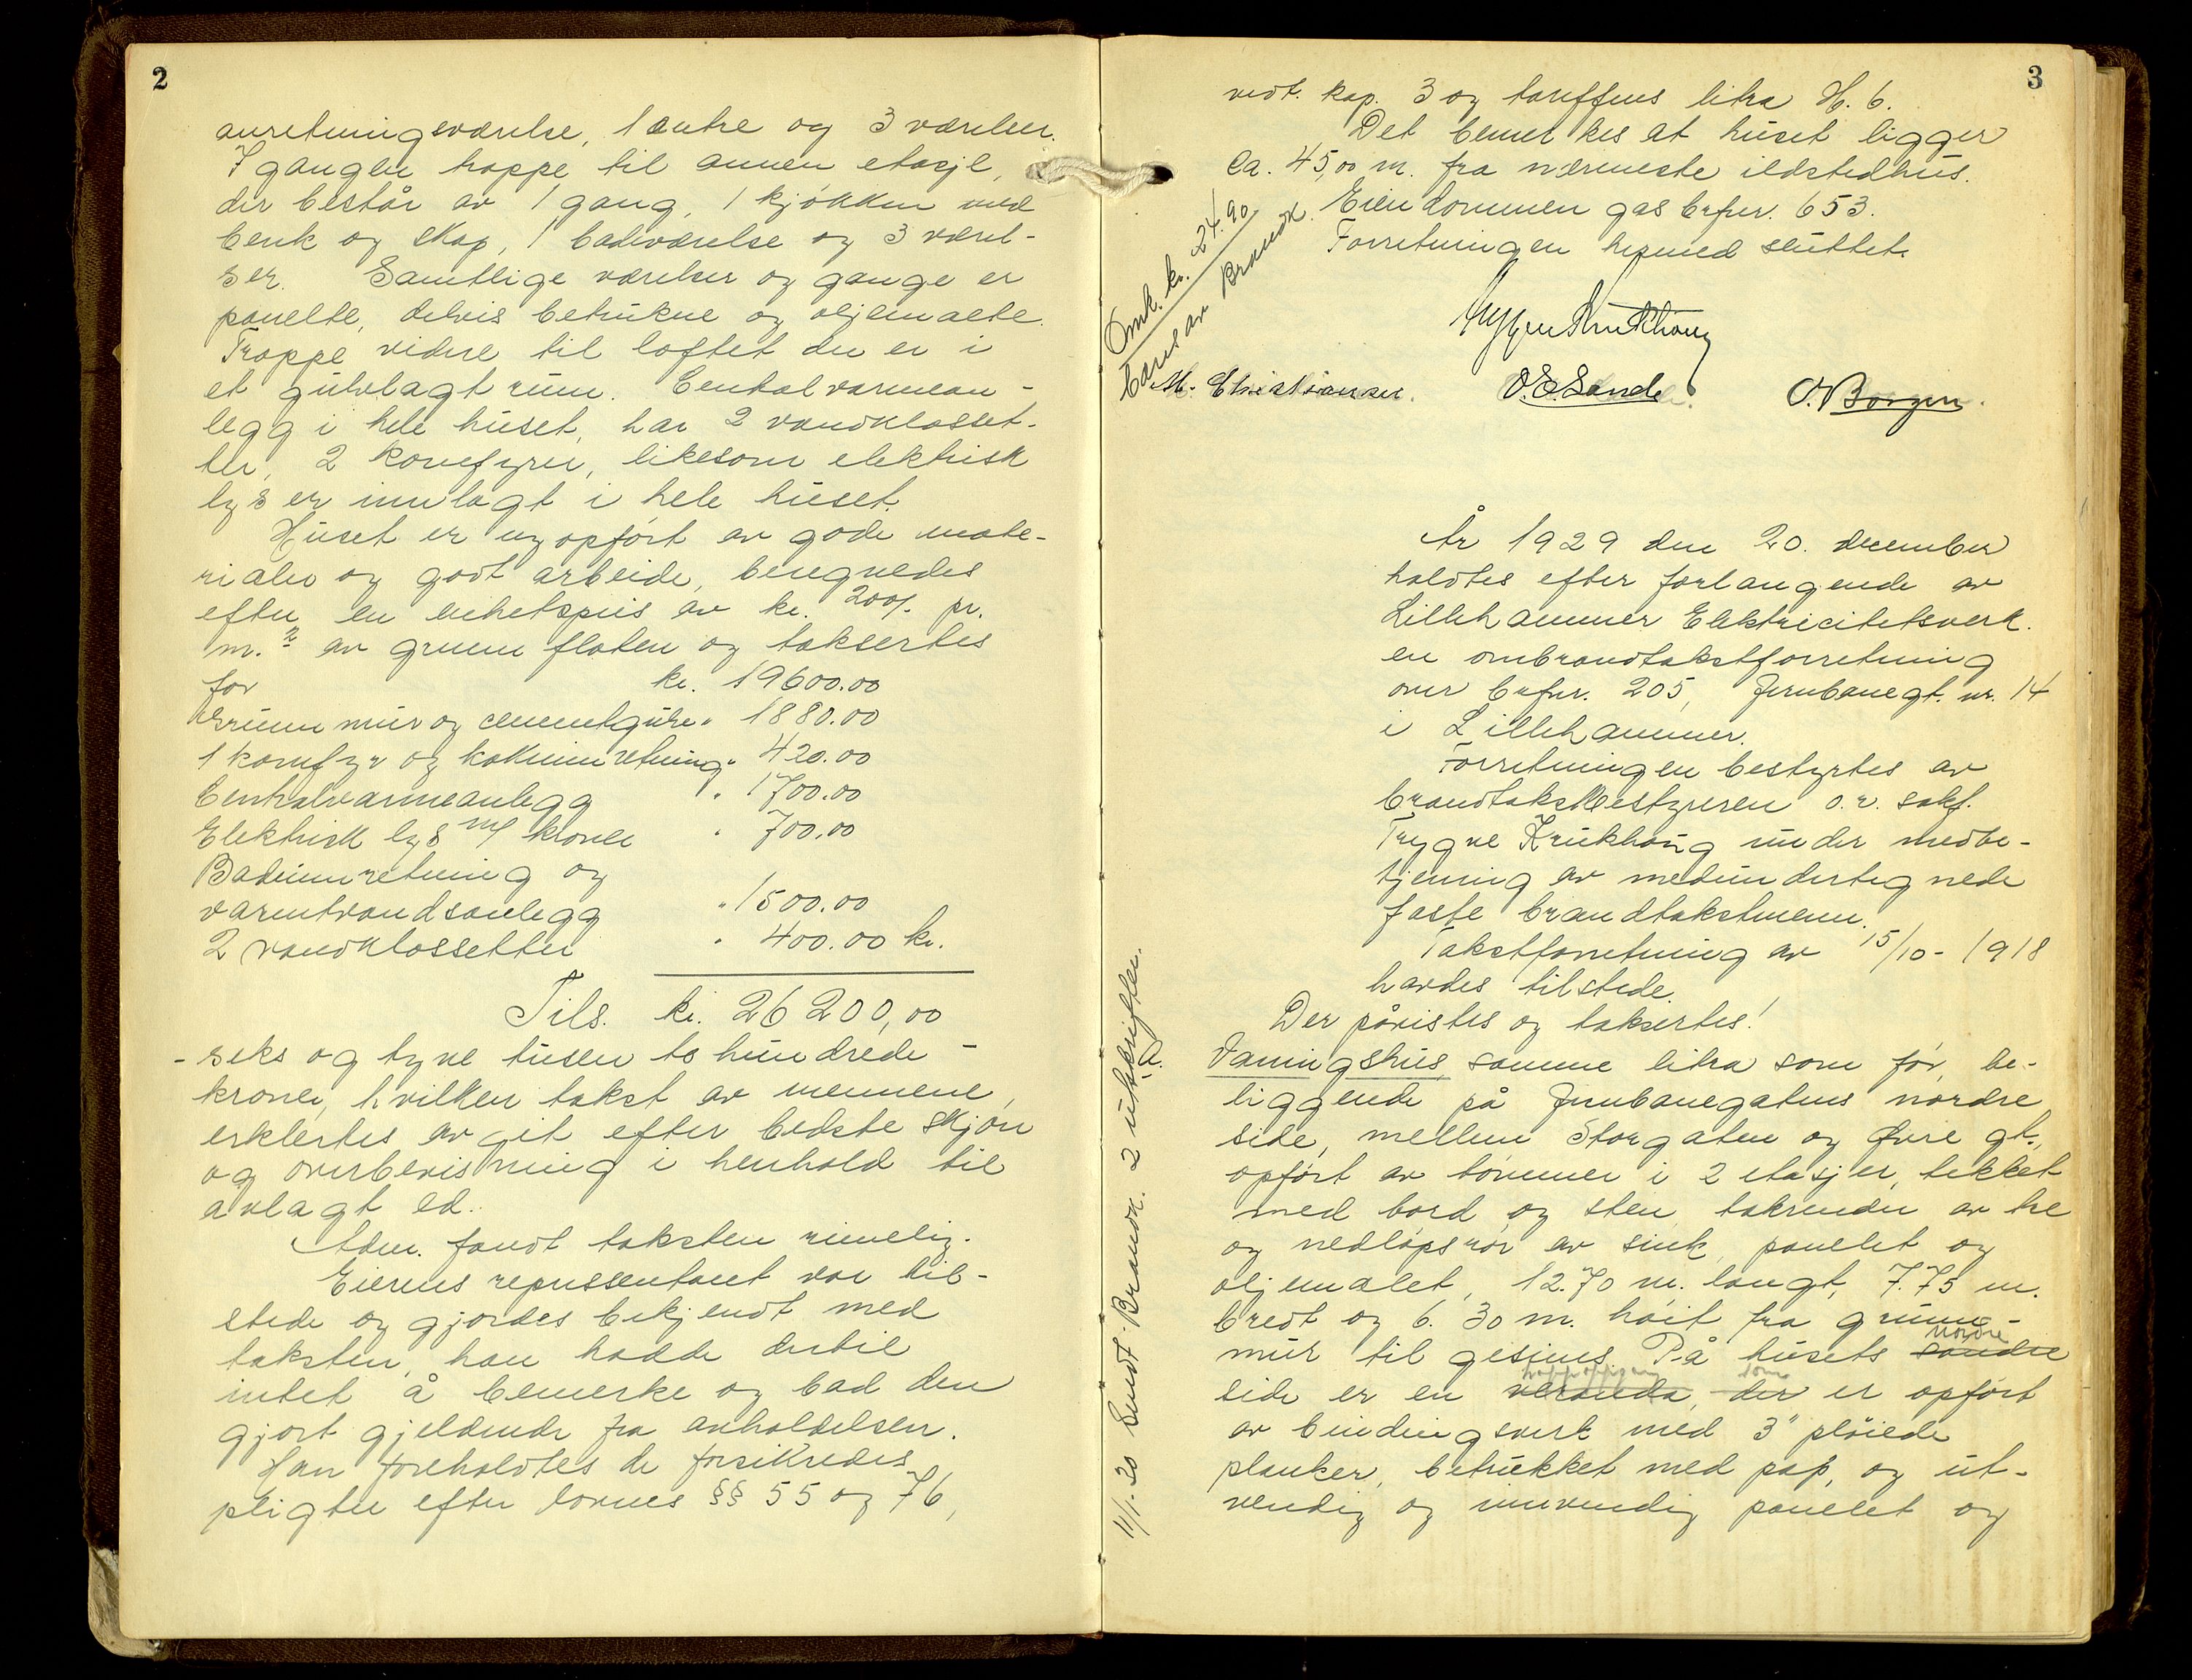 2
anretningsværelse, 1 entre og 3 værelser.
I gangen trappe til annen etasje,
der består av 1 gang, 1 kjøkken med
benk og skap, 1 badeværelse og 3 værel-
ser. Samtlige værelser og gange er
panelte, delvis betrukne og oljemalte.
Trappe videre til loftet der er i
et gulvlagt rum. Centralvarmean-
legg i hele huset, har 2 vandklosset-
ter, 2 komfyrer, likesom elektrisk
lys er innlagt i hele huset.
Huset er nyopført av gode mate-
rialer og godt arbeide, beregnedes
efter en enhetspris av kr. 200/- pr.
m.² av grunnflaten og taksertes
for kr. 19600.00
Grunnmur og cementgulv " 1880.00
1 komfyr og kokeinnretning " 420.00
Centralvarmeanlegg " 1700.00
Elektrisk lys m/ kroner " 700.00
Badeinnretning og
varmtvandsanlegg " 1500.00
2 vandklossetter " 400.00 kr.
Tils. kr. 26200,00
- seks og tyve tusen to hundrede -
kroner, hvilken takst av mennene
erklertes avgit efter bedste skjøn
og overbevisning i henhold til
avlagt ed.
Adm. fandt taksten rimelig.
Eierens representant var til-
stede og gjordes bekjendt med
taksten, han hadde dertil
intet å bemerke og bad den
gjort gjeldende fra avholdelsen.
Han foreholdtes de forsikredes
pligter efter lovens §§ 55 og 76,
3
vedt. kap. 3 og tariffens litra H. 6.
Det bemerkes at huset ligger
ca. 45,00 m. fra nærmeste ildstedhus.
Eiendommen gas brfnr. 653.
Forretningen hermed sluttet.
Omk. kr. 24.90
bæres av Brandk.
Trygve Krukhaug
M. Christiansen. O. E. Sande O. Borgen.
År 1929 den 20. december
holdtes efter forlangende av
Lillehammer Elektricitetsverk.
en ombrandtakstforretning
over brfnr. 205, Jernbanegt. nr. 14
i Lillehammer.
Forretningen bestyrtes av
brandtakstbestyreren o.r. sakf.
Trygve Krukhaug under medbe-
tjening av medundertegnede
faste brandtakstmenn.
Takstforretning av 15/10 - 1918
havdes tilstede.
Der påvistes og taksertes!
a. Våningshus, samme litra som før, be-
liggende på Jernbanegatens nordre
side, mellem Storgaten og Øvre gt.,
opført av tømmer i 2 etasjer, tekket
med bord og sten, takrender av tre
og nedløpsrør av sink, panelet og
oljemalet, 12.70 m. langt, 7.75 m.
bredt og 6.30 m. høit fra grunn-
mur til gesims. På husets søndre nordre
side er en veranda, trappopgang der som er opført
av bindingsverk med 3" pløiede
planker, betrukket med pap, og ut-
vendig og innvendig panelet og
11/1-30 Sendt Brandk. 2 utskrifter.